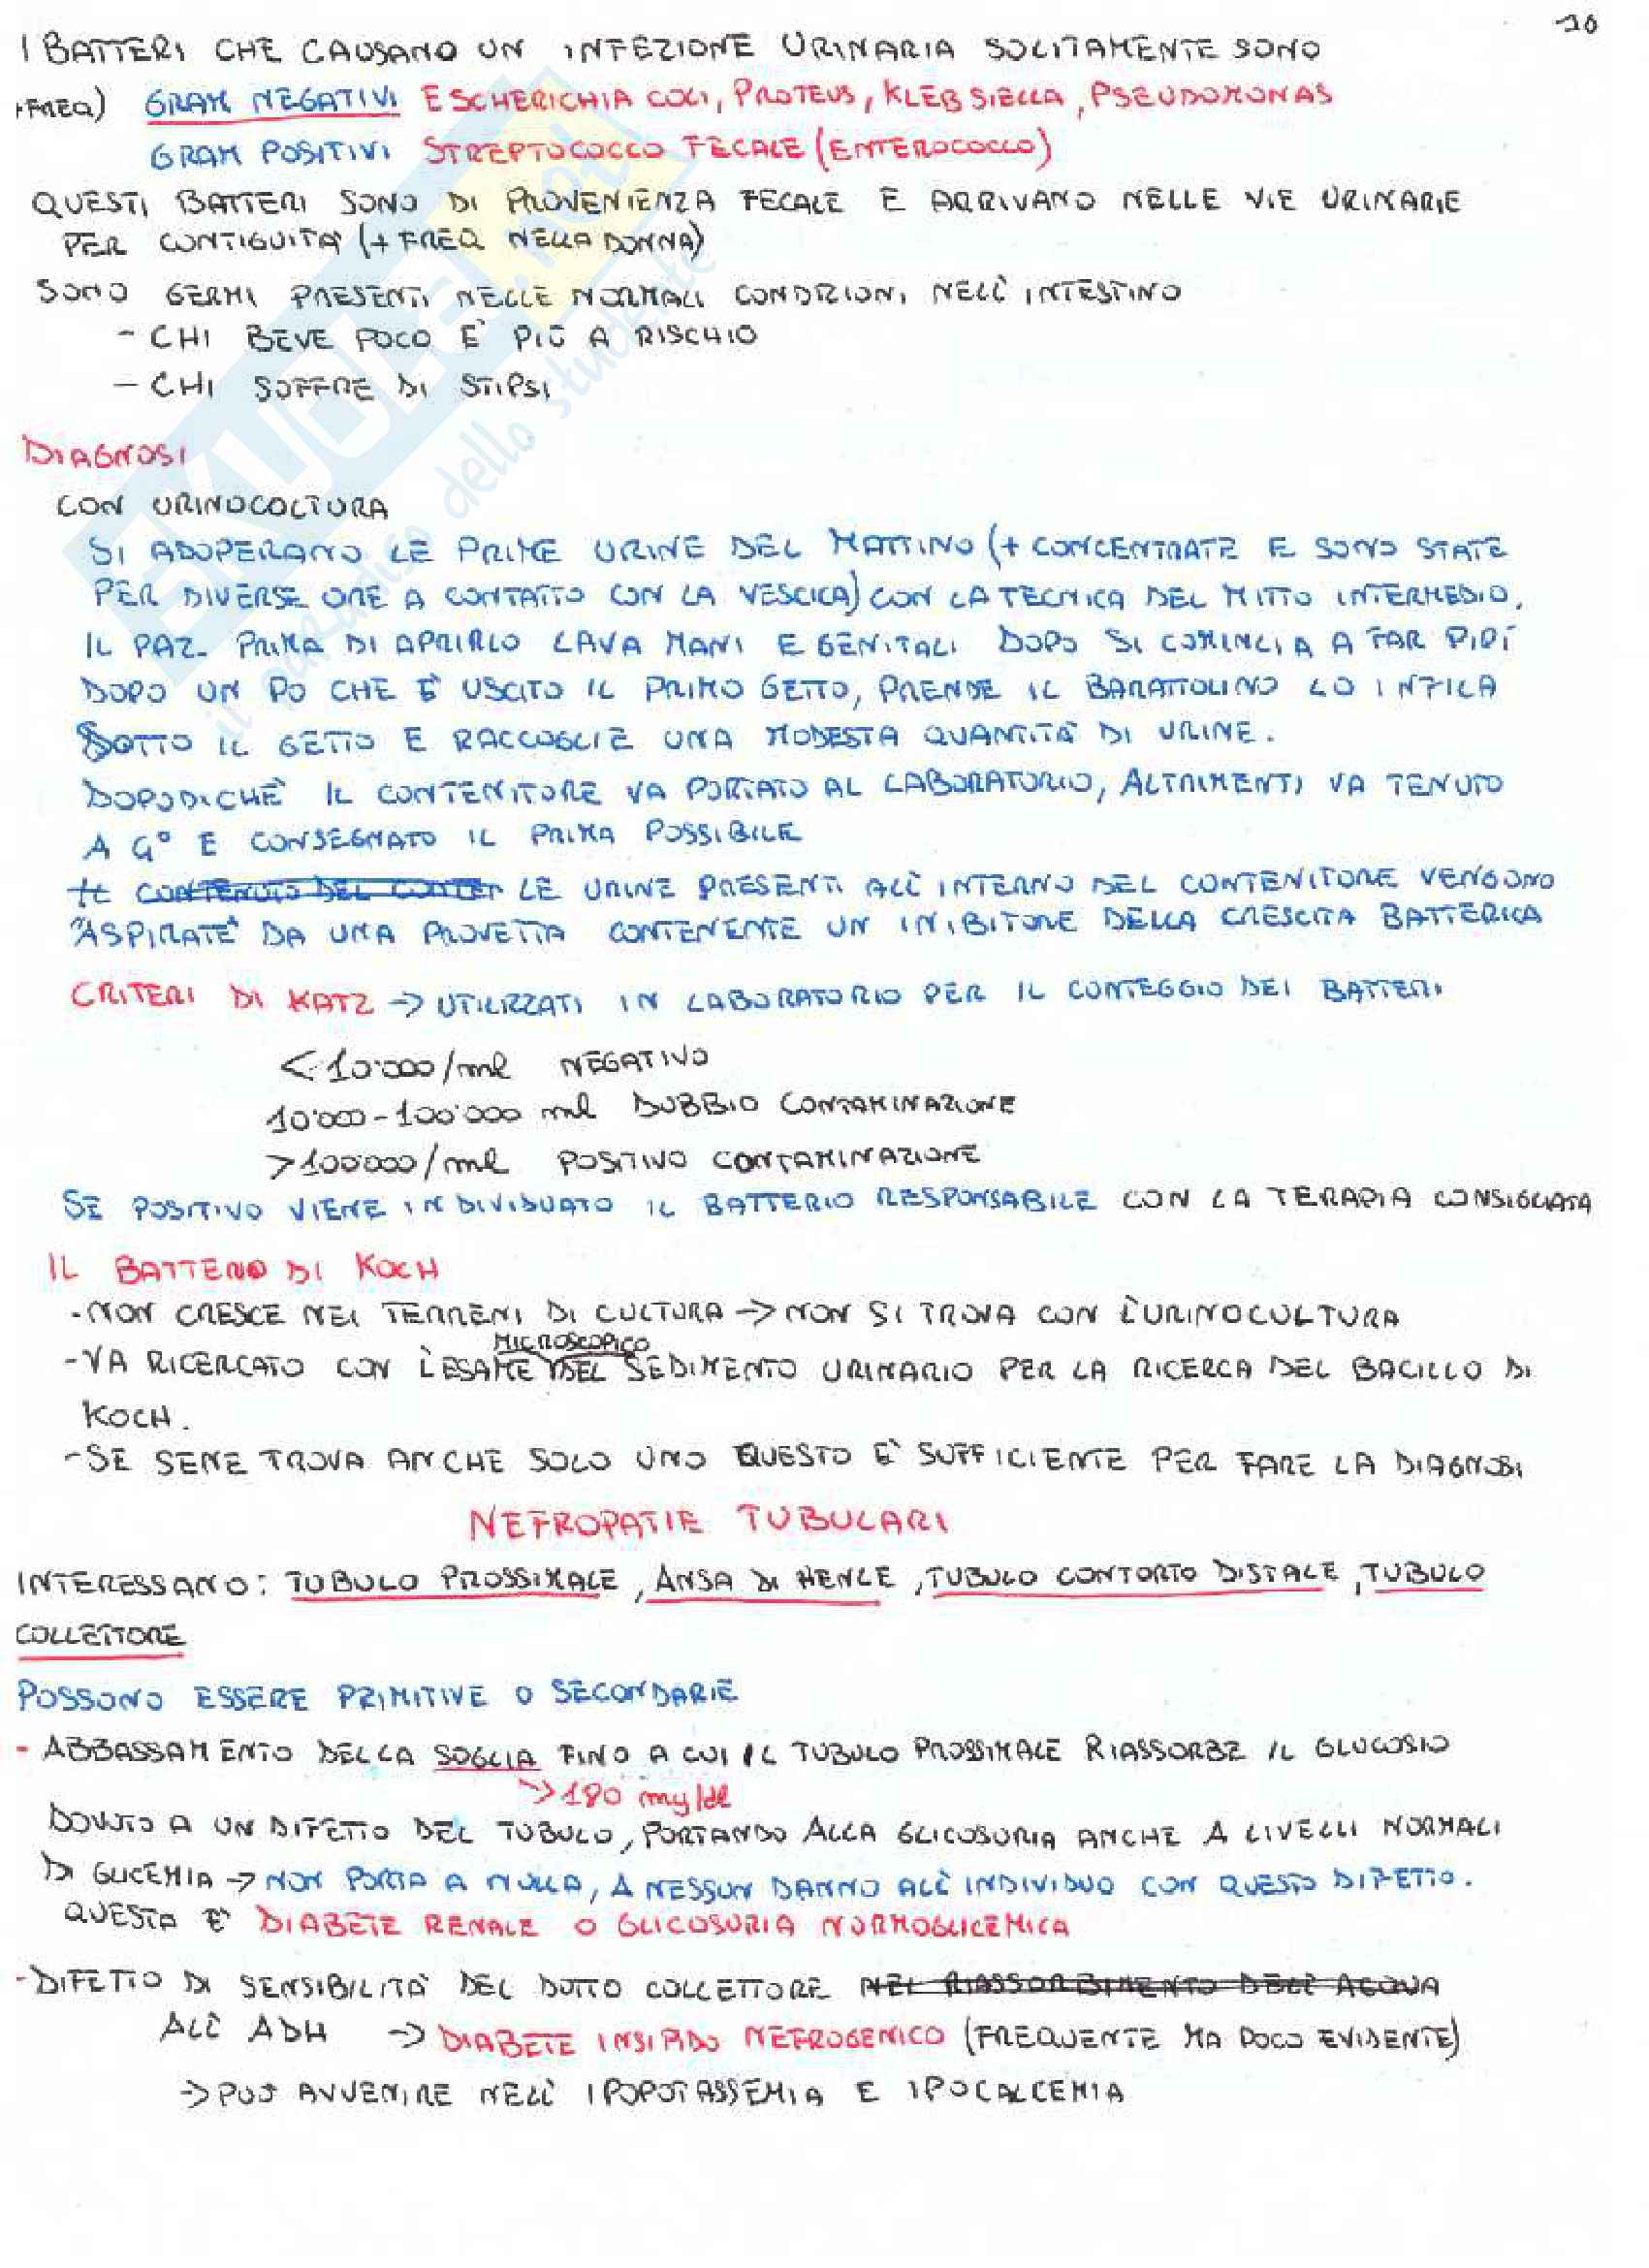 10
I BATTERI CHE CAUSANO UN INFEZIONE URINARIA SOLITAMENTE SONO
+FREQ) GRAM NEGATIVI ESCHERICHIA COLI, PROTEUS, KLEBSIELLA, PSEUDOMONAS
GRAM POSITIVI STREPTOCOCCO FECALE (ENTEROCOCCO)
QUESTI BATTERI SONO DI PROVENIENZA FECALE E ARRIVANO NELLE VIE URINARIE
PER CONTIGUITÀ (+ FREQ NELLA DONNA)
SONO GERMI PRESENTI NELLE NORMALI CONDIZIONI NELL'INTESTINO
- CHI BEVE POCO E' PIÙ A RISCHIO
- CHI SOFFRE DI STIPSI
DIAGNOSI
CON URINOCOLTURA
SI ADOPERANO LE PRIME URINE DEL MATTINO (+ CONCENTRATE E SONO STATE
PER DIVERSE ORE A CONTATTO CON LA VESCICA) CON LA TECNICA DEL MITTO INTERMEDIO,
IL PAZ. PRIMA DI APRIRLO LAVA MANI E GENITALI DOPO SI COMINCIA A FAR PIPÍ
DOPO UN PO CHE È USCITO IL PRIMO GETTO, PRENDE IL BARATTOLINO LO INFILA
SOTTO IL GETTO E RACCOGLIE UNA MODESTA QUANTITÀ DI URINE.
DOPODICHÈ IL CONTENITORE VA PORTATO AL LABORATORIO, ALTRIMENTI VA TENUTO
A 4° E CONSEGNATO IL PRIMA POSSIBILE
IL CONTENUTO DEL CONTEN LE URINE PRESENTI ALL'INTERNO DEL CONTENITORE VENGONO
"ASPIRATE" DA UNA PROVETTA CONTENENTE UN INIBITORE DELLA CRESCITA BATTERICA
CRITERI DI KATZ -> UTILIZZATI IN LABORATORIO PER IL CONTEGGIO DEI BATTERI
< 10'000/ml NEGATIVO
10'000-100'000 ml DUBBIO CONTAMINAZIONE
>100000/ml POSITIVO CONTAMINAZIONE
SE POSITIVO VIENE INDIVIDUATO IL BATTERIO RESPONSABILE CON LA TERAPIA CONSIGLIATA
IL BATTERIO DI KOCH
-NON CRESCE NEI TERRENI DI CULTURA -> NON SI TROVA CON L'URINOCULTURA
MICROSCOPICO
-VA RICERCATO CON L'ESAME DEL SEDIMENTO URINARIO PER LA RICERCA DEL BACILLO DI
KOCH.
-SE SENE TROVA ANCHE SOLO UNO QUESTO E' SUFFICIENTE PER FARE LA DIAGNOSI
NEFROPATIE TUBULARI
INTERESSANO: TUBULO PROSSIMALE, ANSA DI HENLE, TUBULO CONTORTO DISTALE, TUBULO
COLLETTORE
POSSONO ESSERE PRIMITIVE O SECONDARIE
- ABBASSAMENTO DELLA SOGLIA FINO A CUI IL TUBULO PROSSIMALE RIASSORBE IL GLUCOSIO
->180 mg/dl
DOVUTO A UN DIFETTO DEL TUBULO, PORTANDO ALLA GLICOSURIA ANCHE A LIVELLI NORMALI
DI GLICEMIA -> NON PORTA A NULLA, A NESSUN DANNO ALL'INDIVIDUO CON QUESTO DIFETTO.
QUESTA E' DIABETE RENALE O GLICOSURIA NORMOGLICEMICA
-DIFETTO DI SENSIBILITÀ DEL DOTTO COLLETTORE NEL RIASSORBIMENTO DELL'ACQUA
ALL'ADH -> DIABETE INSIPIDO NEFROGENICO (FREQUENTE MA POCO EVIDENTE)
-> PUÒ AVVENIRE NELL'IPOPOTASSEMIA E IPOCALCEMIA
SKUOLA.net
il paradiso dello studente